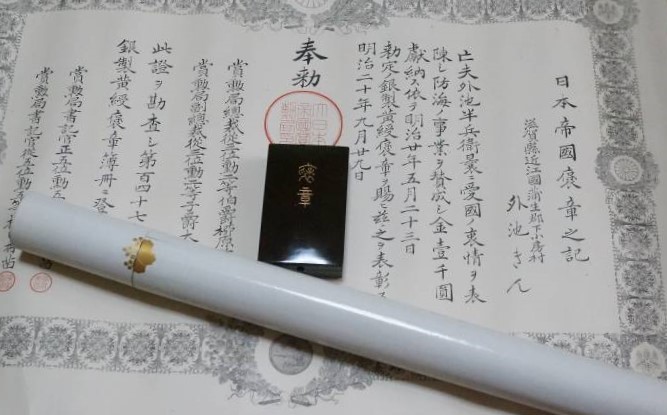 日本帝國褒章之記
滋賀縣近江國蒲生郡下小房村
外池きん
亡夫外池半兵衛曩ニ愛國ノ衷情ヲ表
陳シ防海ノ事業ヲ賛成シ金壹千圓
獻納ス依テ明治廿年五月二十三日
勅定ノ銀製黃綬褒章ヲ賜ヒ茲ニ之ヲ表彰ス
明治二十年九月廿九日
奉勅
賞勲局總裁從二位勲一等伯爵柳原
賞勲局副總裁從二位勲二等子爵大
此證ヲ勘査シ第百四十七
銀製黃綬褒章簿冊ニ登
賞勲局書記官正五位勲五
賞勲局書記官從六位勲
褒章